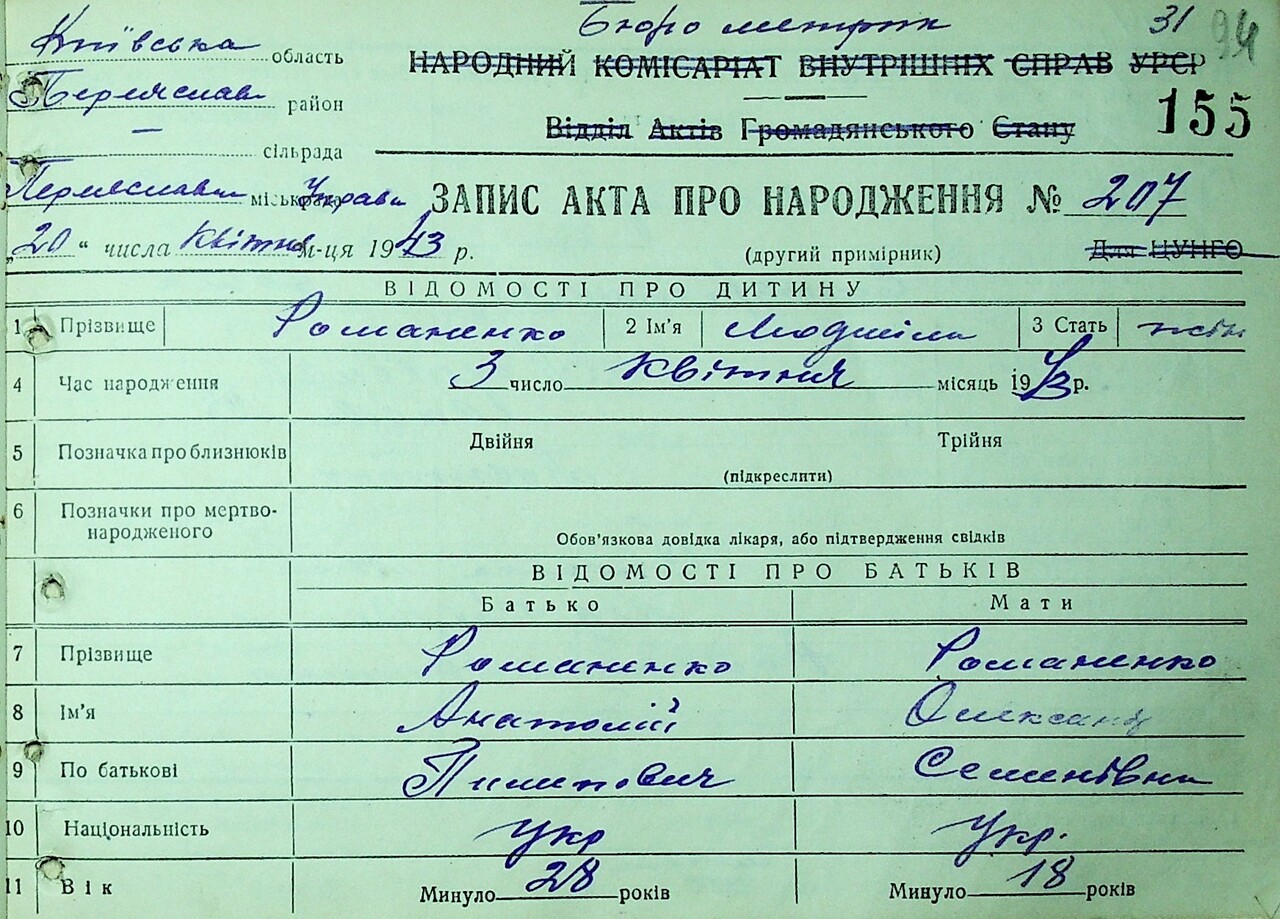 Бюро метрик 31 94
Київська область
НАРОДНИЙ КОМІСАРІАТ ВНУТРІШНІХ СПРАВ УРСР
Переяслав район
Відділ Актів Громадянського Стану 155
— сільрада
Переяславська міськрада Управа
ЗАПИС АКТА ПРО НАРОДЖЕННЯ № 207
„20“ числа квітня м-ця 1943 р.
(другий примірник) Для ЦУНГО
ВІДОМОСТІ ПРО ДИТИНУ
1 Прізвище Романенко 2 Ім'я Людміла 3 Стать жін
4 Час народження 3 число квітня місяць 1943 р.
5 Позначка про близнюків Двійня Трійня
(підкреслити)
6 Позначки про мертво-
народженого
Обов'язкова довідка лікаря, або підтвердження свідків
ВІДОМОСТІ ПРО БАТЬКІВ
Батько Мати
7 Прізвище Романенко Романенко
8 Ім'я Анатолій Олександ
9 По батькові Пилипович Семенівна
10 Національність Укр Укр.
11 Вік Минуло 28 років Минуло 18 років